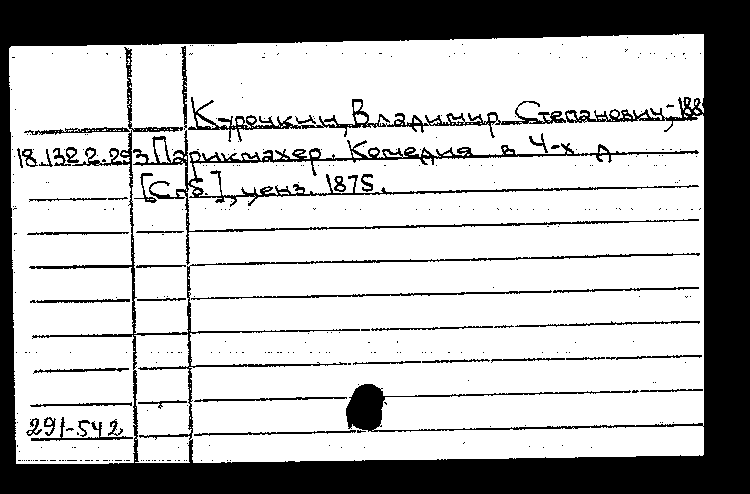 Курочкин, Владимир Степанович, -188
18.132.2.293 Парикмахер. Комедия в 4-х д.
[Спб.], ценз. 1875.
291-542